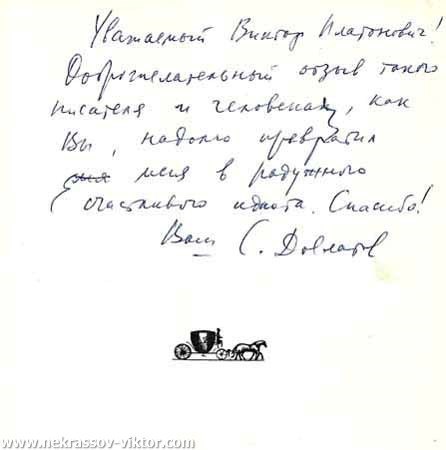 Уважаемый Виктор Платонович!
Доброжелательный отзыв такого
писателя и человека, как
Вы, надолго превратил
меня в радужного
счастливого идиота. Спасибо!
Ваш С. Довлатов
www.nekrassov-viktor.com